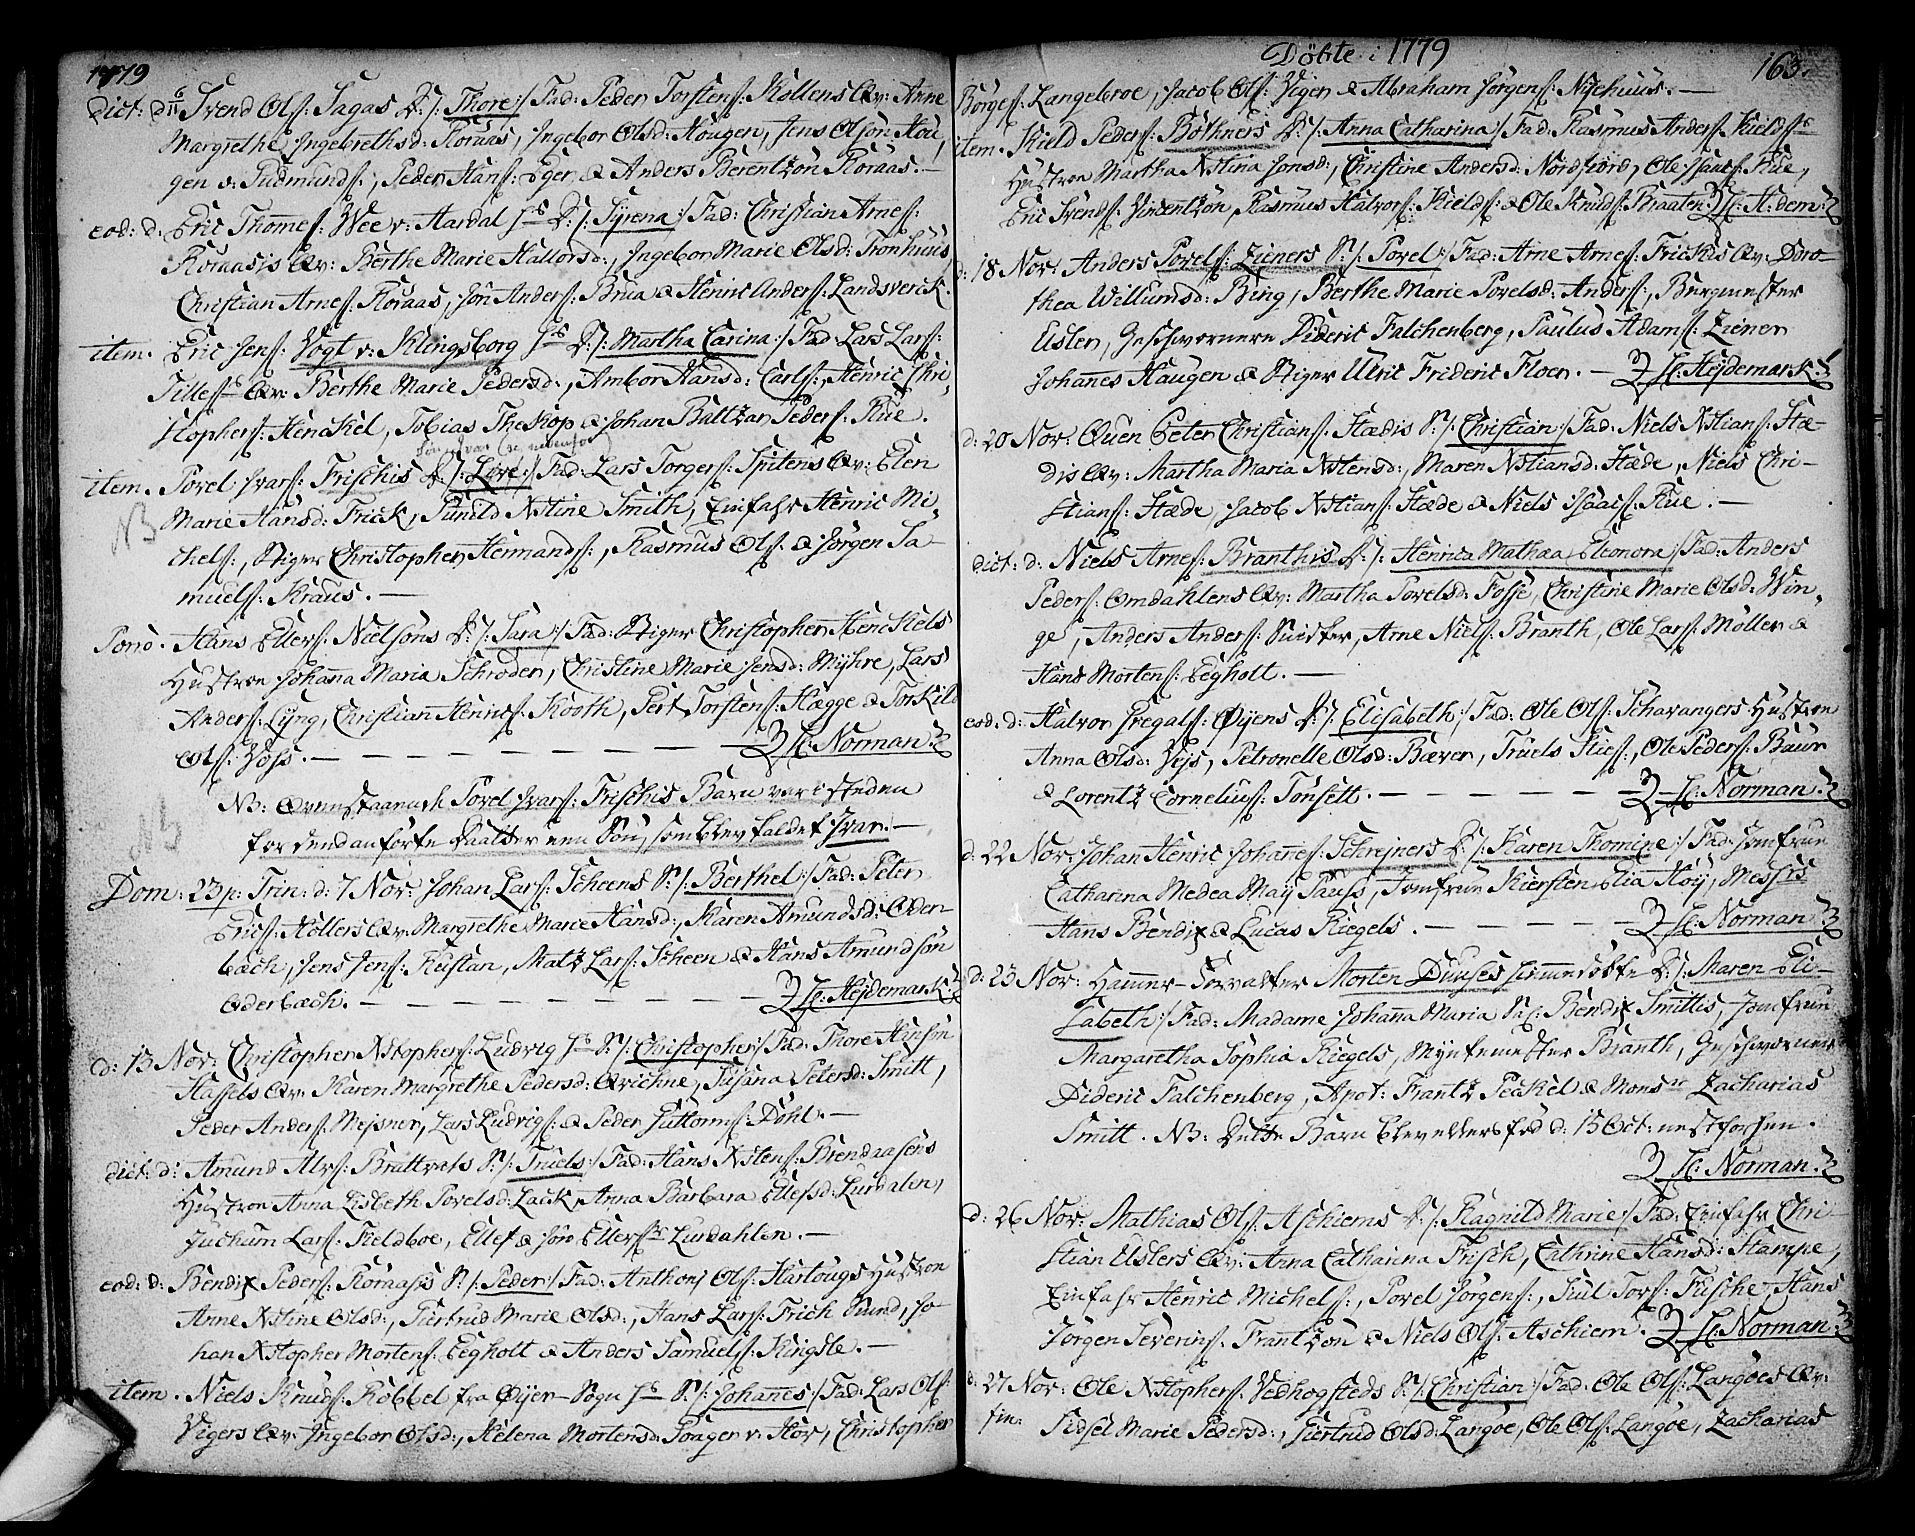 1779
dict: d: Svend Ols: Sagas S:/: Thore :/ Fad: Peder Torstens: Kollens Qv: Anne
Margrethe Ingebrethsd: Koraas, Ingebor Olsd: Hougen, Jens Olsøn Hou,
gen v: Gudmunds:, Peder Hans: Eger & Anders Berentzøn Koraas. —
eod: d: Eric Thomes: Wee v: Aardal Hs D:/: Syrena :/ Fad: Christian Arnes:
Koraasis Qv: Berthe Marie Hallorsd:, Ingebor Marie Olsd: Tronhuus,
Christian Arnes: Koraas, Jøn Anders: Brua & Henric Anders: Landsverck.
item. Eric Jens: Vogt v: Klingsborg Hs D:/: Martha Carina :/ Fad: Lars Lars:
Tilless Qv: Berthe Marie Pedersd:, Ambor Hansd: Carls:, Henric Chri,
stophers: Henckel, Tobias Theskop & Johan Baltzar Peders: Rue.
item. Povel Ivars: Frischis D:/: Love :/ Fad: Lars Torgers: Spitens Qv: Elen
NB Marie Hansd: Frick, Gunild Xstine Smith, Einfahr Henric Mi,
chels:, Stiger Christopher Hermands:, Rasmus Ols: & Jørgen Sa-
muels: Kraus. —
Pono. Hans Ellers: Nielsøns D:/: Sara :/ Fad: Stiger Christopher Henckels
Hustroe Johanna Maria Schroder, Christine Marie Jensd: Myhre, Lars
Anders: Lyng, Christian Hennes: Kooth, Pert Torstens: Hægge & Torkild
Ols: Voss. — — — — — H: Norman.
NB: Ovenstaaende Povel Ivars: Frischis Barn var i steden
NB for dend anførte Daatter een Søn, som blev kaldet Ivar. —
Dom: 23 p: Trin: d: 7 Nov: Johan Lars: Scheens S:/: Berthel :/ Fad: Peter
Erics: Hollers Qv: Margrethe Marie Hansd:, Karen Amundsd: Oder-
bæch, Jens Jens: Rustan, Matz Lars: Scheen & Hans Amundsøn
Oderbæch. — — — — — H: Hejdemark
d: 13 Nov: Christopher Xstophers: Ludvig Hs S:/: Christopher :/ Fad: Thore Hansøn
Hassels Qv: Karen Margrethe Pedersd: Qvichne, Susana Petersd: Smitt,
Peder Anders: Meisner, Lars Ludvigs: & Peder Guttorms: Dohl. —
dict: d: Amund Alvs: Brattvets S:/: Truels :/ Fad: Hans Xstens: Brendaasens
Hustroe Anna Lisbeth Povelsd: Lack, Anna Barbara Ellefsd: Lurdalen,
Juchum Lars: Fieldboe, Ellef & Jøn Ellefs: Lurdahlen. —
eod: d: Bendix Peders: Koraass S:/: Peder :/ Fad: Anthonj Ols: Hartougs Hustroe
Anne Xstine Olsd:, Giertrud Marie Olsd:, Hans Lars: Frich Sund, Jo-
han Xstopher Mortens: Eegholt & Anders Samuels: Kingsle. —
item. Niels Knuds: Kobbel fra Øyer-Sogn Hs S:/: Johannes :/ Fad: Lars Ols:
Vigers Qv: Ingebor Olsd:, Helena Mortensd: Ponger v: Hov, Christopher
Døbte i 1779 163.
Børges: Langebroe, Jacob Ols: Viger & Abraham Jørgens: Nyehuus. —
item. Kield Peders: Bøthners D:/: Anna Catharina :/ Fad: Rasmus Anders: Kields
Hustroe Martha Xstina Jonsd:, Christine Andersd: Nordfiord, Ole Isaacs: Rue,
Eric Svends: Vincentzøn, Rasmus Halvors: Kields: & Ole Knuds: Braaten H: H:dem:
d: 18 Nov: Anders Povels: Zieners S:/: Povel :/ Fad: Arne Arnes: Frickis Qv: Doro-
thea Willumsd: Bing, Berthe Marie Povelsd: Anders:, Bergmester
Esler, Geschwornere Dideric Falchenberg, Paulus Adams: Ziener
Johannes Haugen & Stiger Ulric Frideric Floer. — H: Hejdemark
d: 20 Nov: Ouen Peter Christians: Hædis S:/: Christian :/ Fad: Niels Xstians: Hæ-
dis Qv: Martha Maria Xstensd:, Maren Xstiansd: Hæde, Niels Chri-
stians: Hæde, Jacob Xstians: Hæde & Niels Isaacs: Rue. —
dict: d: Niels Arnes: Branthis D:/: Henrica Mathaa Eleonora :/ Fad: Anders
Peders: Omdahlens Qv: Martha Povelsd: Fosse, Christine Marie Olsd: Win,
ge, Anders Anders: Quister, Arne Niels: Branth, Ole Lars: Møller &
Hans Mortens: Eegholt. —
eod: d: Halvor Gregals: Øyens D:/: Elisabeth :/ Fad: Ole Ols: Schavangers Hustroe
Anna Olsd: Vejs, Petronelle Olsd: Bæver, Truels Flies:, Ole Peders: Baur
& Lorentz Cornelius: Tønsett. — — — — H: Norman.
d: 22 Nov: Johan Henric Johannes: Schrejners D:/: Karen Thomine :/ Fad: Jomfrue
Catharina Medea Maÿ Pauss, Jomfrue Kiersten Elia Høÿ, Messrs
Hans Bendix & Lucas Riegels. — — — — H: Norman
d: 23 Nov: Hammer-Forvalter Morten Duuses hiemmedøbte D:/: Maren Eli-
sabeth :/ Fad: Madame Johanna Maria Sal: Bendix Smittis, Jomfrue
Margaretha Sophia Riegels, Myntemester Branth, Geschworner
Dideric Falchenberg, Apot: Frantz Peckel & Monsr Zacharias
Smitt. NB: Dette Barn blev ellers fød d: 15 Oct: nestforhen.
H: Norman.
d: 26 Nov: Mathias Ols: Aschiems D:/: Ragnild Marie :/ Fad: Einfahr Chri-
stian Eslers Qv: Anna Catharina Frisch, Cathrine Hansd: Stampe,
Einfahr Henric Michels:, Povel Jørgens:, Juul Tors: Fusche, Hans
Jørgen Severins: Frantzøn & Niels Ols: Aschiem. H: Norman.
d: 27 Nov: Ole Xstophers: Vedhogsteds S:/: Christian :/ Fad: Ole Ols: Langøes Qv:
Sidsel Marie Pedersd:, Giertrud Olsd: Langøe, Ole Ols: Langøe, Zacharias